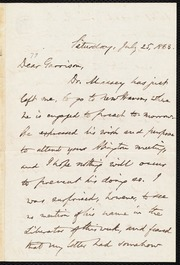 Saturday, July 25, 1868.
Dear Garrison,
Dr. Massey has just
left me, to go to New Haven, where
he is engaged to preach to-morrow.
He expressed his wish and purpose
to attend your Abington meeting,
and I hope nothing will occur
to prevent his doing so. I
was surprised, however, to see
no mention of his name in the
Liberator of this week, and feared
that my letter had somehow